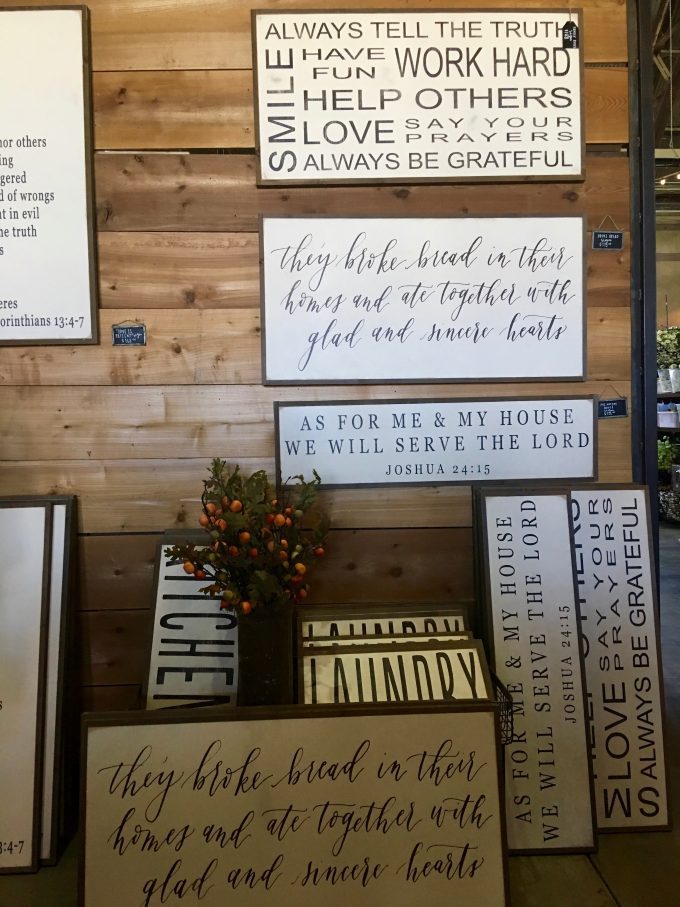 ALWAYS TELL THE TRUTH
SMILE
HAVE FUN
WORK HARD
HELP OTHERS
LOVE
SAY YOUR PRAYERS
ALWAYS BE GRATEFUL
others
d of wrongs
in evil
truth
orinthians 13:4-7
they broke bread in their
homes and ate together with
glad and sincere hearts
AS FOR ME & MY HOUSE
WE WILL SERVE THE LORD
JOSHUA 24:15
KITCHEN
LAUNDRY
LAUNDRY
they broke bread in their
homes and ate together with
glad and sincere hearts
AS FOR ME & MY HOUSE
WE WILL SERVE THE LORD
JOSHUA 24:15
OTHERS
LOVE
SAY YOUR
PRAYERS
ALWAYS BE GRATEFUL
3:4-7